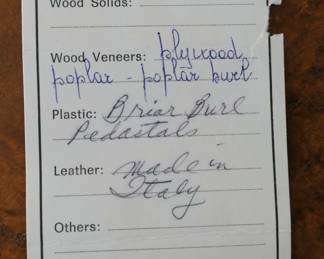 Wood Solids:
Wood Veneers: plywood
poplar - poplar burl
Plastic: Briar Burl
Pedastals
Leather: made in
Italy
Others: